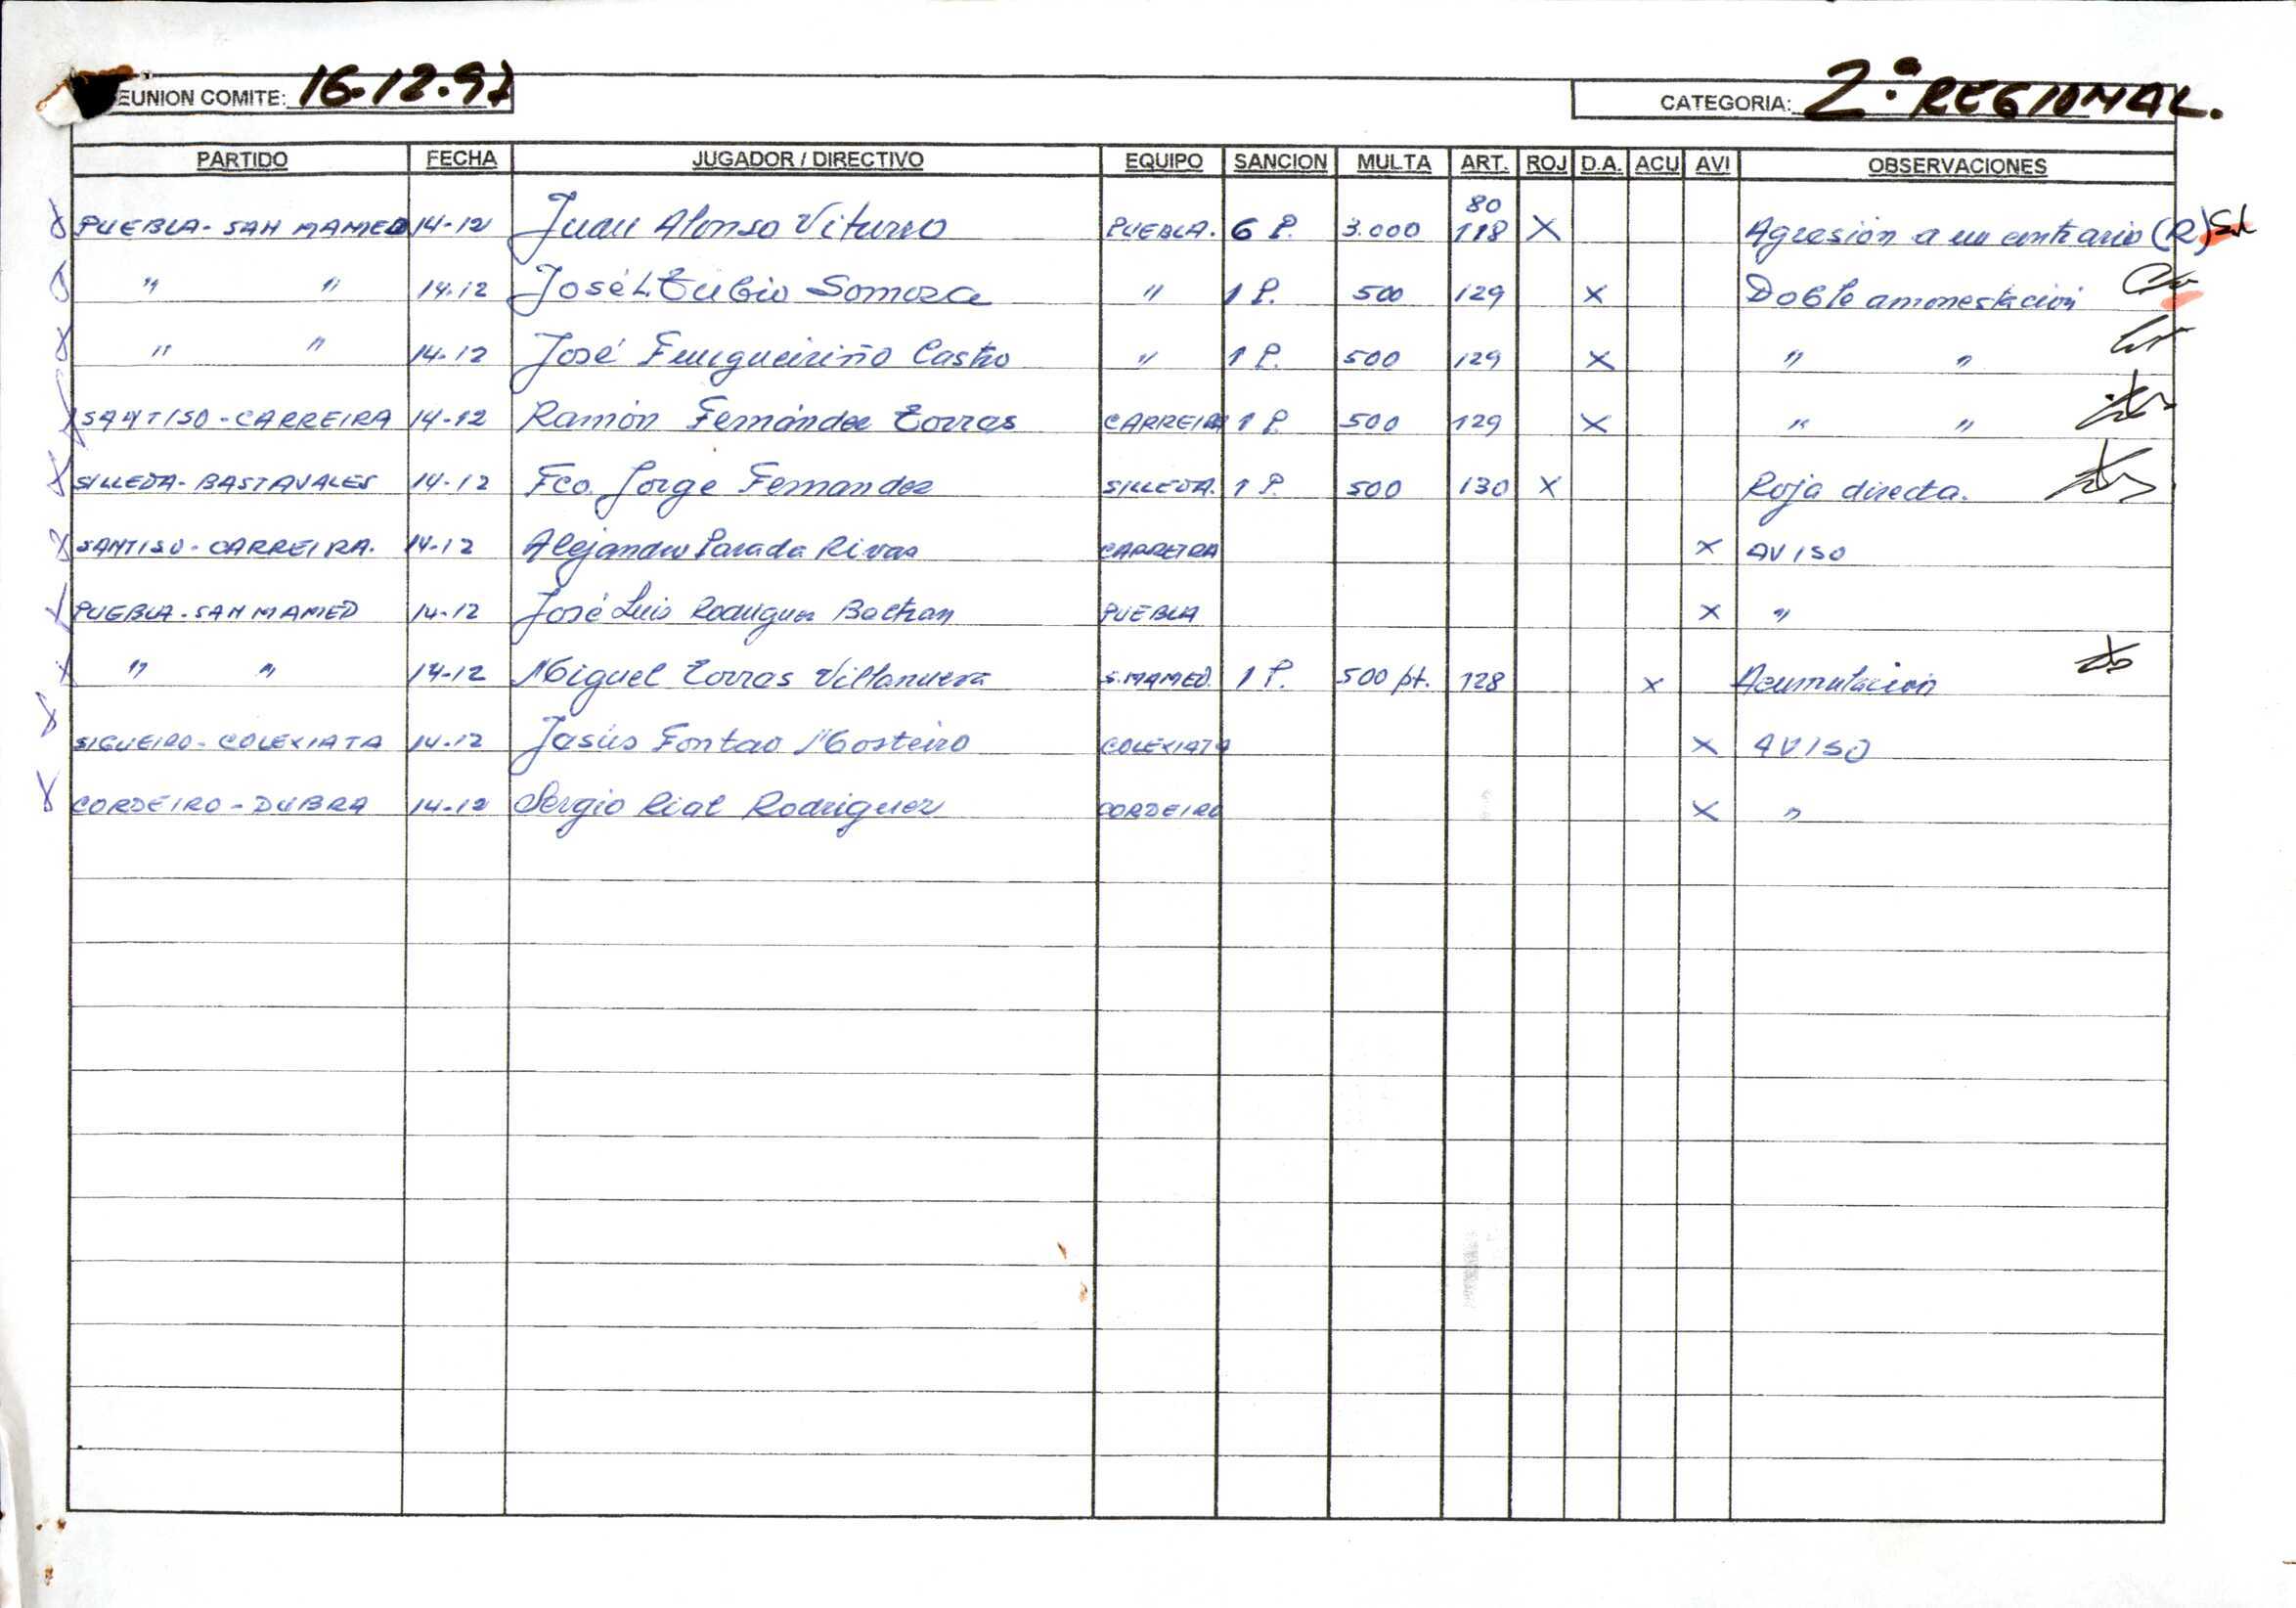 REUNION COMITE: 16-12-97 CATEGORIA: 2ª REGIONAL.
PARTIDO FECHA JUGADOR / DIRECTIVO EQUIPO SANCION MULTA ART. ROJ D.A. ACU AVI OBSERVACIONES
80
PUEBLA - SAN MAMED 14-12 Juan Alonso Viturro PUEBLA. 6 P. 3.000 118 X Agresión a un contrario (R)
" " 14-12 José L. Tubio Somoza " 1 P. 500 129 X Doble amonestación
" " 14-12 José Fungueiriño Castro " 1 P. 500 129 X " "
SANTISO - CARREIRA 14-12 Ramón Fernández Torres CARREIRA 1 P. 500 129 X " "
SILLEDA - BASTAVALES 14-12 Fco. Jorge Fernandez SILLEDA. 1 P. 500 130 X Roja directa.
SANTISO - CARREIRA. 14-12 Alejandro Parada Rivas CARREIRA X AVISO
PUEBLA - SAN MAMED 14-12 José Luis Rodriguez Beltran PUEBLA X "
" " 14-12 Miguel Torres Villanueva S. MAMED. 1 P. 500 pt. 128 X Acumulación
SIGUEIRO - COLEXIATA 14-12 Jesús Fontao Mosteiro COLEXIATA X AVISO
CORDEIRO - DUBRA 14-12 Sergio Rial Rodriguez CORDEIRO X "